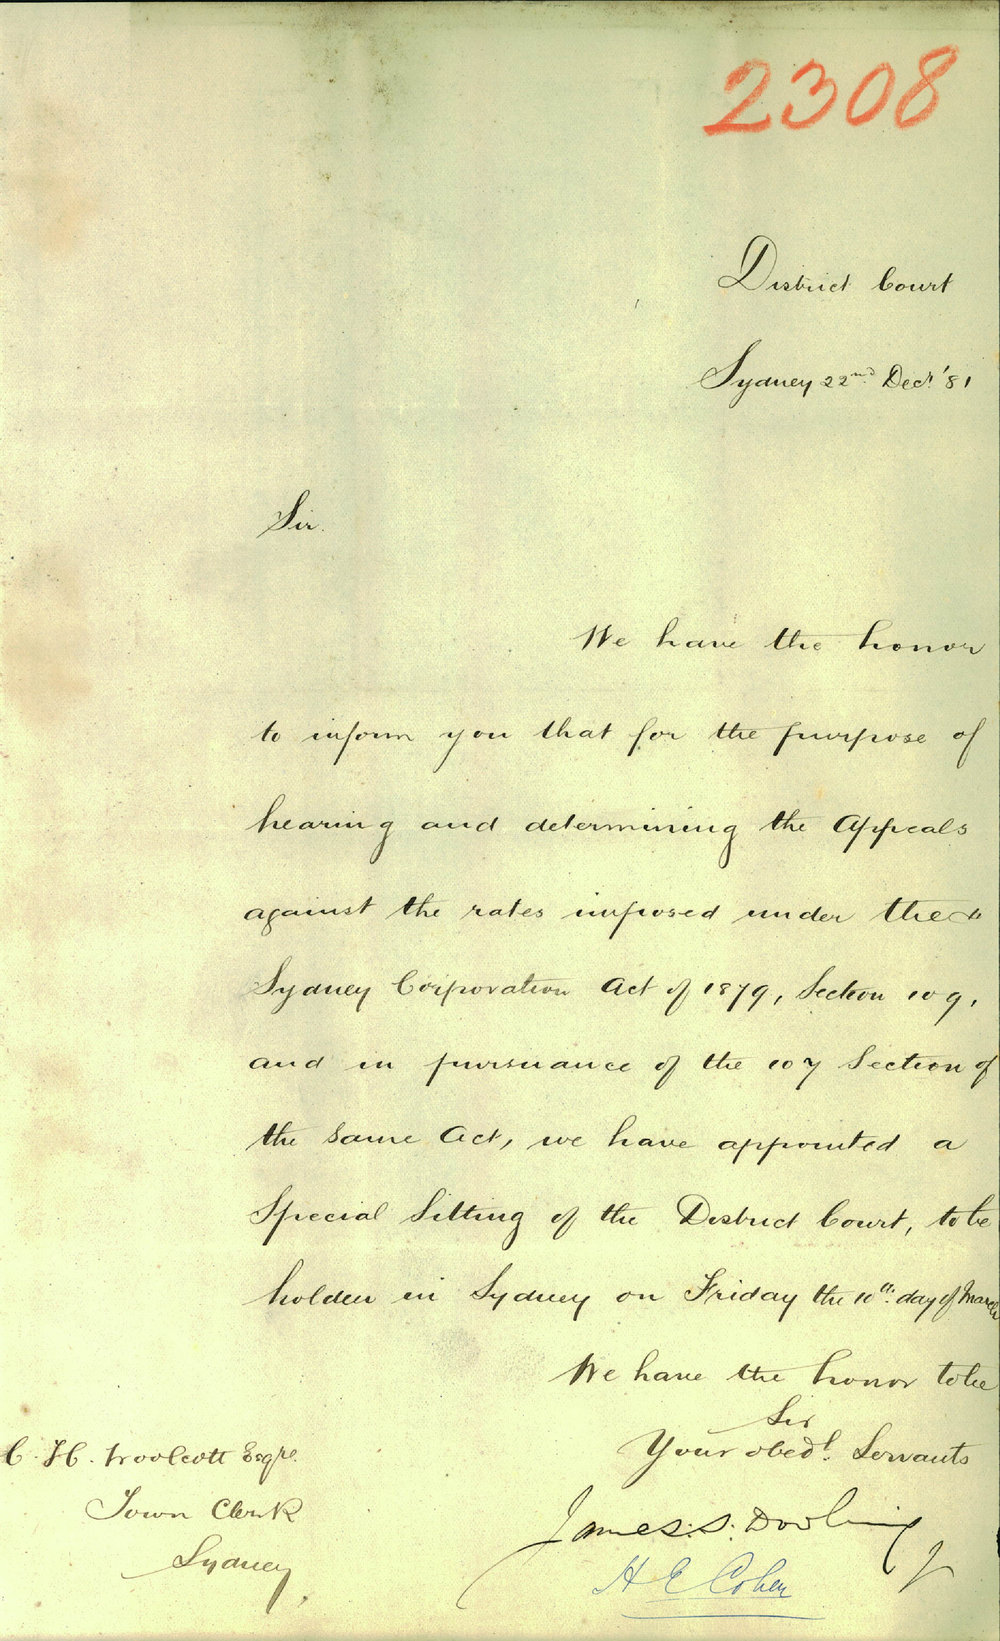 2308
District Court
Sydney 22nd Decr '81
Sir.
We have the honor
to inform you that for the purpose of
hearing and determining the Appeals
against the rates imposed under the
Sydney Corporation Act of 1879, Section 109,
and in pursuance of the 107 Section of
the same Act, we have appointed a
Special Sitting of the District Court, to be
holden in Sydney on Friday the 10th day of March
We have the honor to be
Sir
Your obedt. Servants
James. S. Dowling
H E Cohen
C. H. Woolcott Esqre.
Town Clerk
Sydney